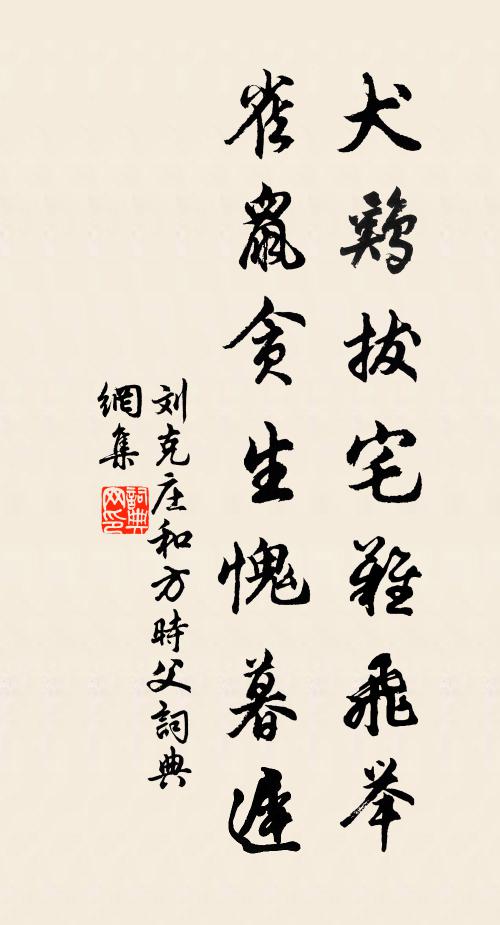 犬鷄拔宅難飛举
雀鼠貪生愧暮遲
刘克庄和方時父詞典
網集
詞典
网印